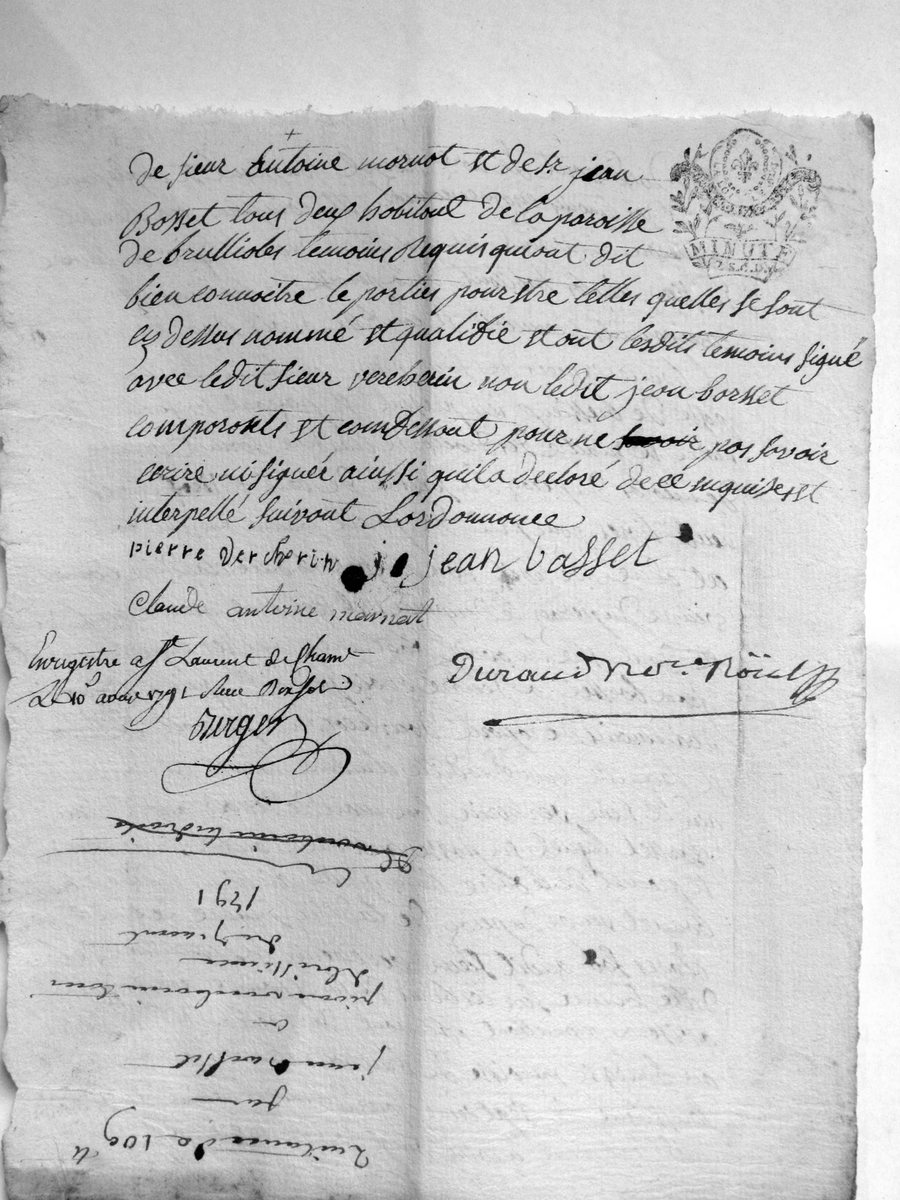 de sieur Antoine mornot et de sr. jean
Bosset tous deux habitant de la paroisse
de brullioles temoins Requis qui ont dit
bien connoitre le porties pour etre telles quelles se sont
cy dessus nommé et qualifié et ont lesdits temoins signé
avec ledit sieur vercherin non ledit jean borsset
composonts et pour ne savoir pas savoir
ecrire ni signér ainssi quil a decloré de ce enquises et
interpellé suivont Lordonnonce
pierre vercherin j jean basset
Claude antoine marnat
MINUTE
2 S. 6 D.
Enregistré a St Laurent de Cham
Le 10 1791
Berger
Durand No.re Röial
quitance de 109 lt
par
jean
a
pierre
de
du 9
1791